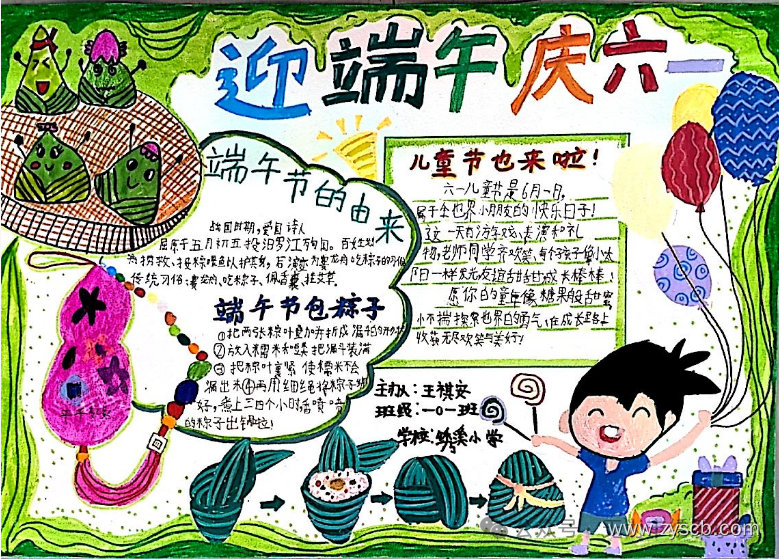 迎端午庆六一
端午节的由来
战国时期,爱国诗人
屈原于五月初五投汨罗江殉国。百姓
传统习俗:赛龙舟、吃粽子、佩香囊、挂艾草
端午节包粽子
①把两张粽叶叠加并折成漏斗的形状
②放入糯米和红枣把漏斗装满
③把粽叶裹紧 使糯米不会
漏出来④再用细绳将粽子绑
好,煮上三四个小时香喷喷
的粽子出锅啦!
儿童节也来啦!
六一儿童节是6月1日,
属于全世界小朋友的快乐日子!
这一天有游戏、表演和礼
物,老师同学齐欢笑,每个孩子像小太
阳一样发光友谊甜甜甘成长棒棒!
愿你的童年像糖果般甜蜜
怀揣探索世界的勇气,在成长路上
收获无尽欢笑与美好!
主办人:王祺安
班级:一01班
学校: 溪小学
平平安安
公众号 www.zyscb.com